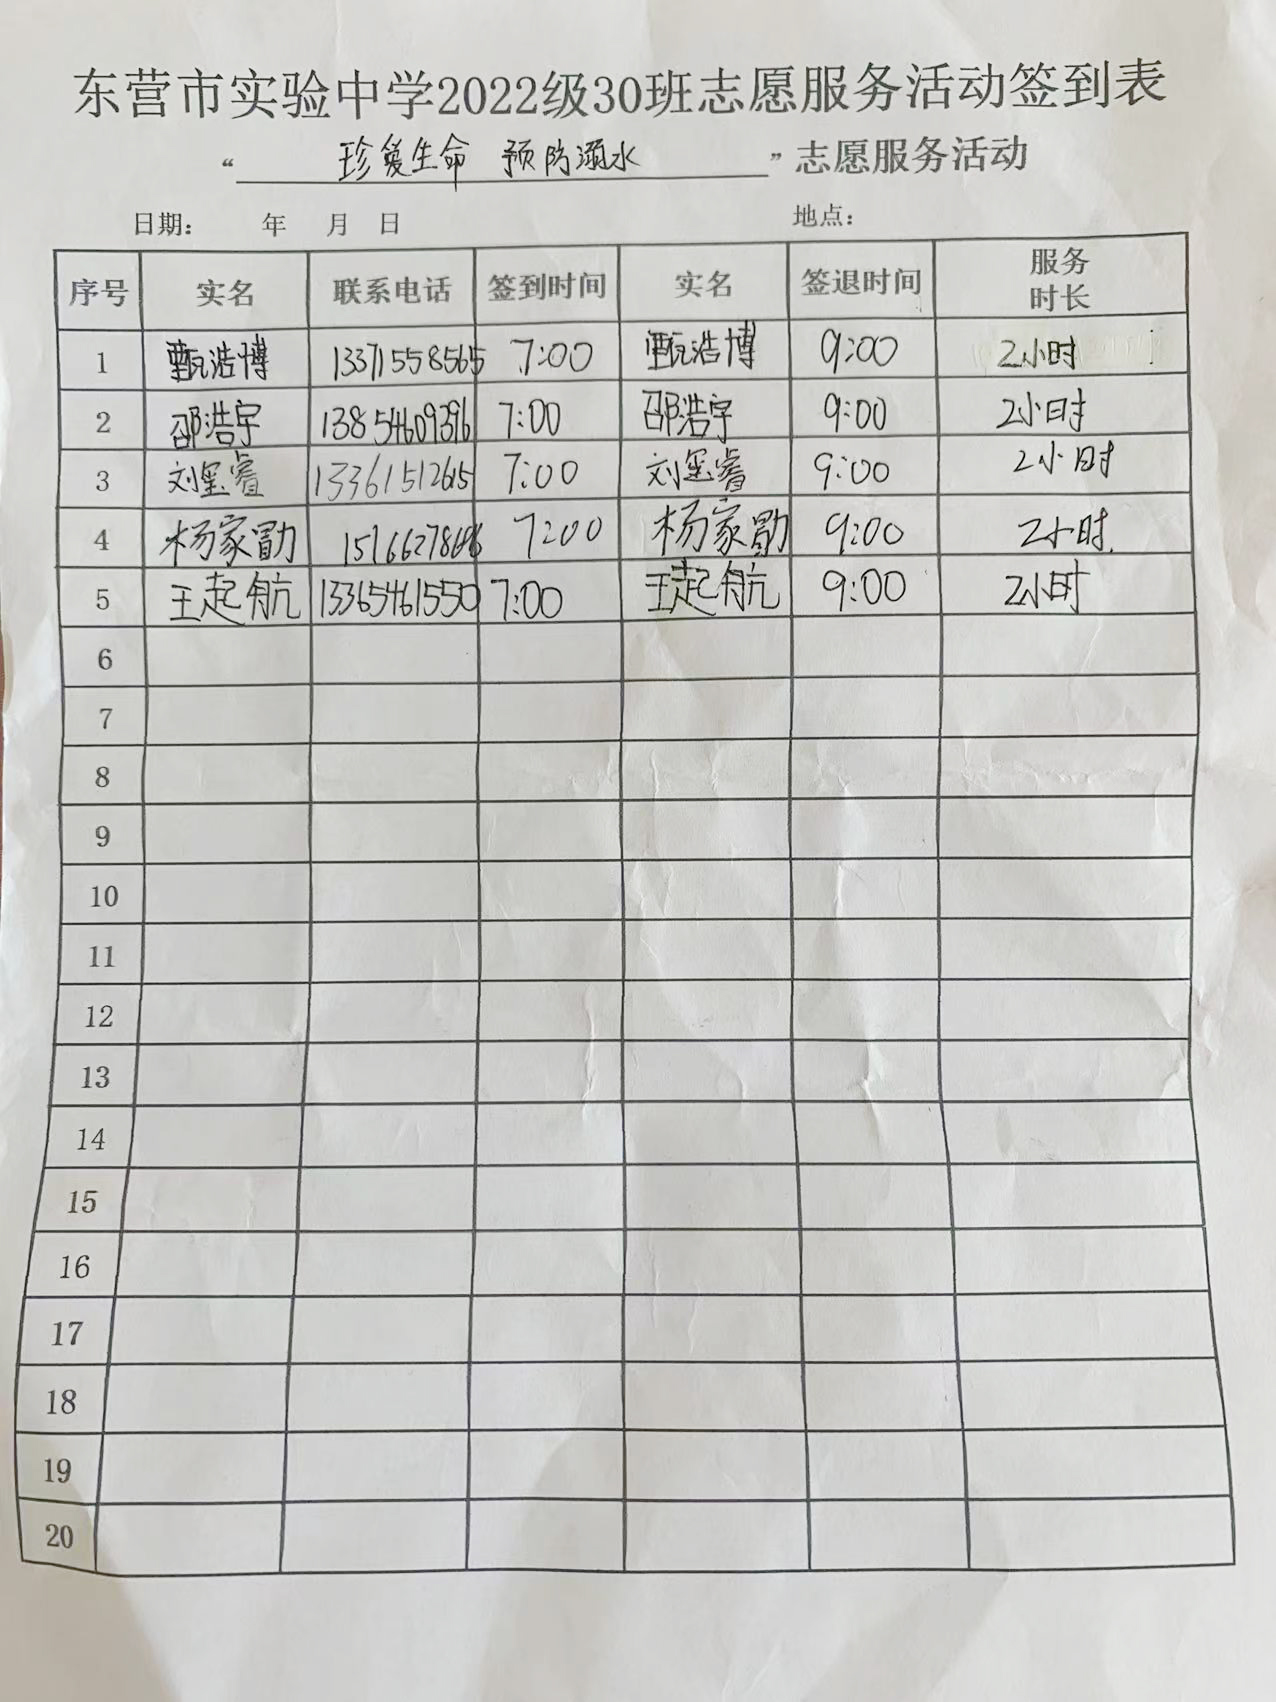 东营市实验中学2022级30班志愿服务活动签到表
“ 珍爱生命 预防溺水 ”志愿服务活动
日期： 年 月 日 地点：
序号 实名 联系电话 签到时间 实名 签退时间 服务时长
1 甄浩博 13371558565 7:00 甄浩博 9:00 2小时
2 邵浩宇 13854609396 7:00 邵浩宇 9:00 2小时
3 刘玺睿 13361512615 7:00 刘玺睿 9:00 2小时
4 杨家勖 7:00 杨家勖 9:00 2小时
5 王起航 13365461550 7:00 王起航 9:00 2小时
6
7
8
9
10
11
12
13
14
15
16
17
18
19
20